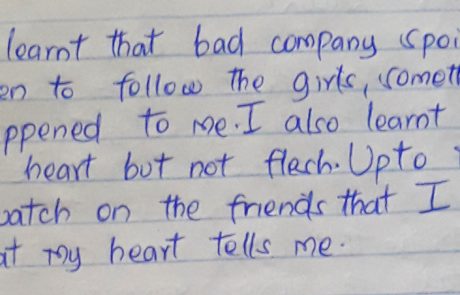 learnt that bad company spoi
en to follow the girls, someth
ppened to me. I also learnt
heart but not flesh. Upto
atch on the friends that I
at my heart tells me.